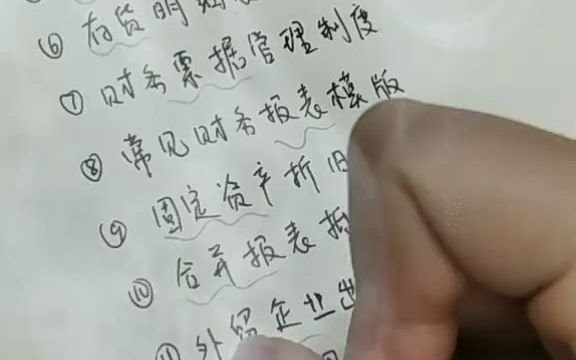 ⑥ 存货明细
⑦ 财务票据管理制度
⑧ 常见财务报表模版
⑨ 固定资产折旧
⑩ 合并报表抵
⑪ 外贸企业出